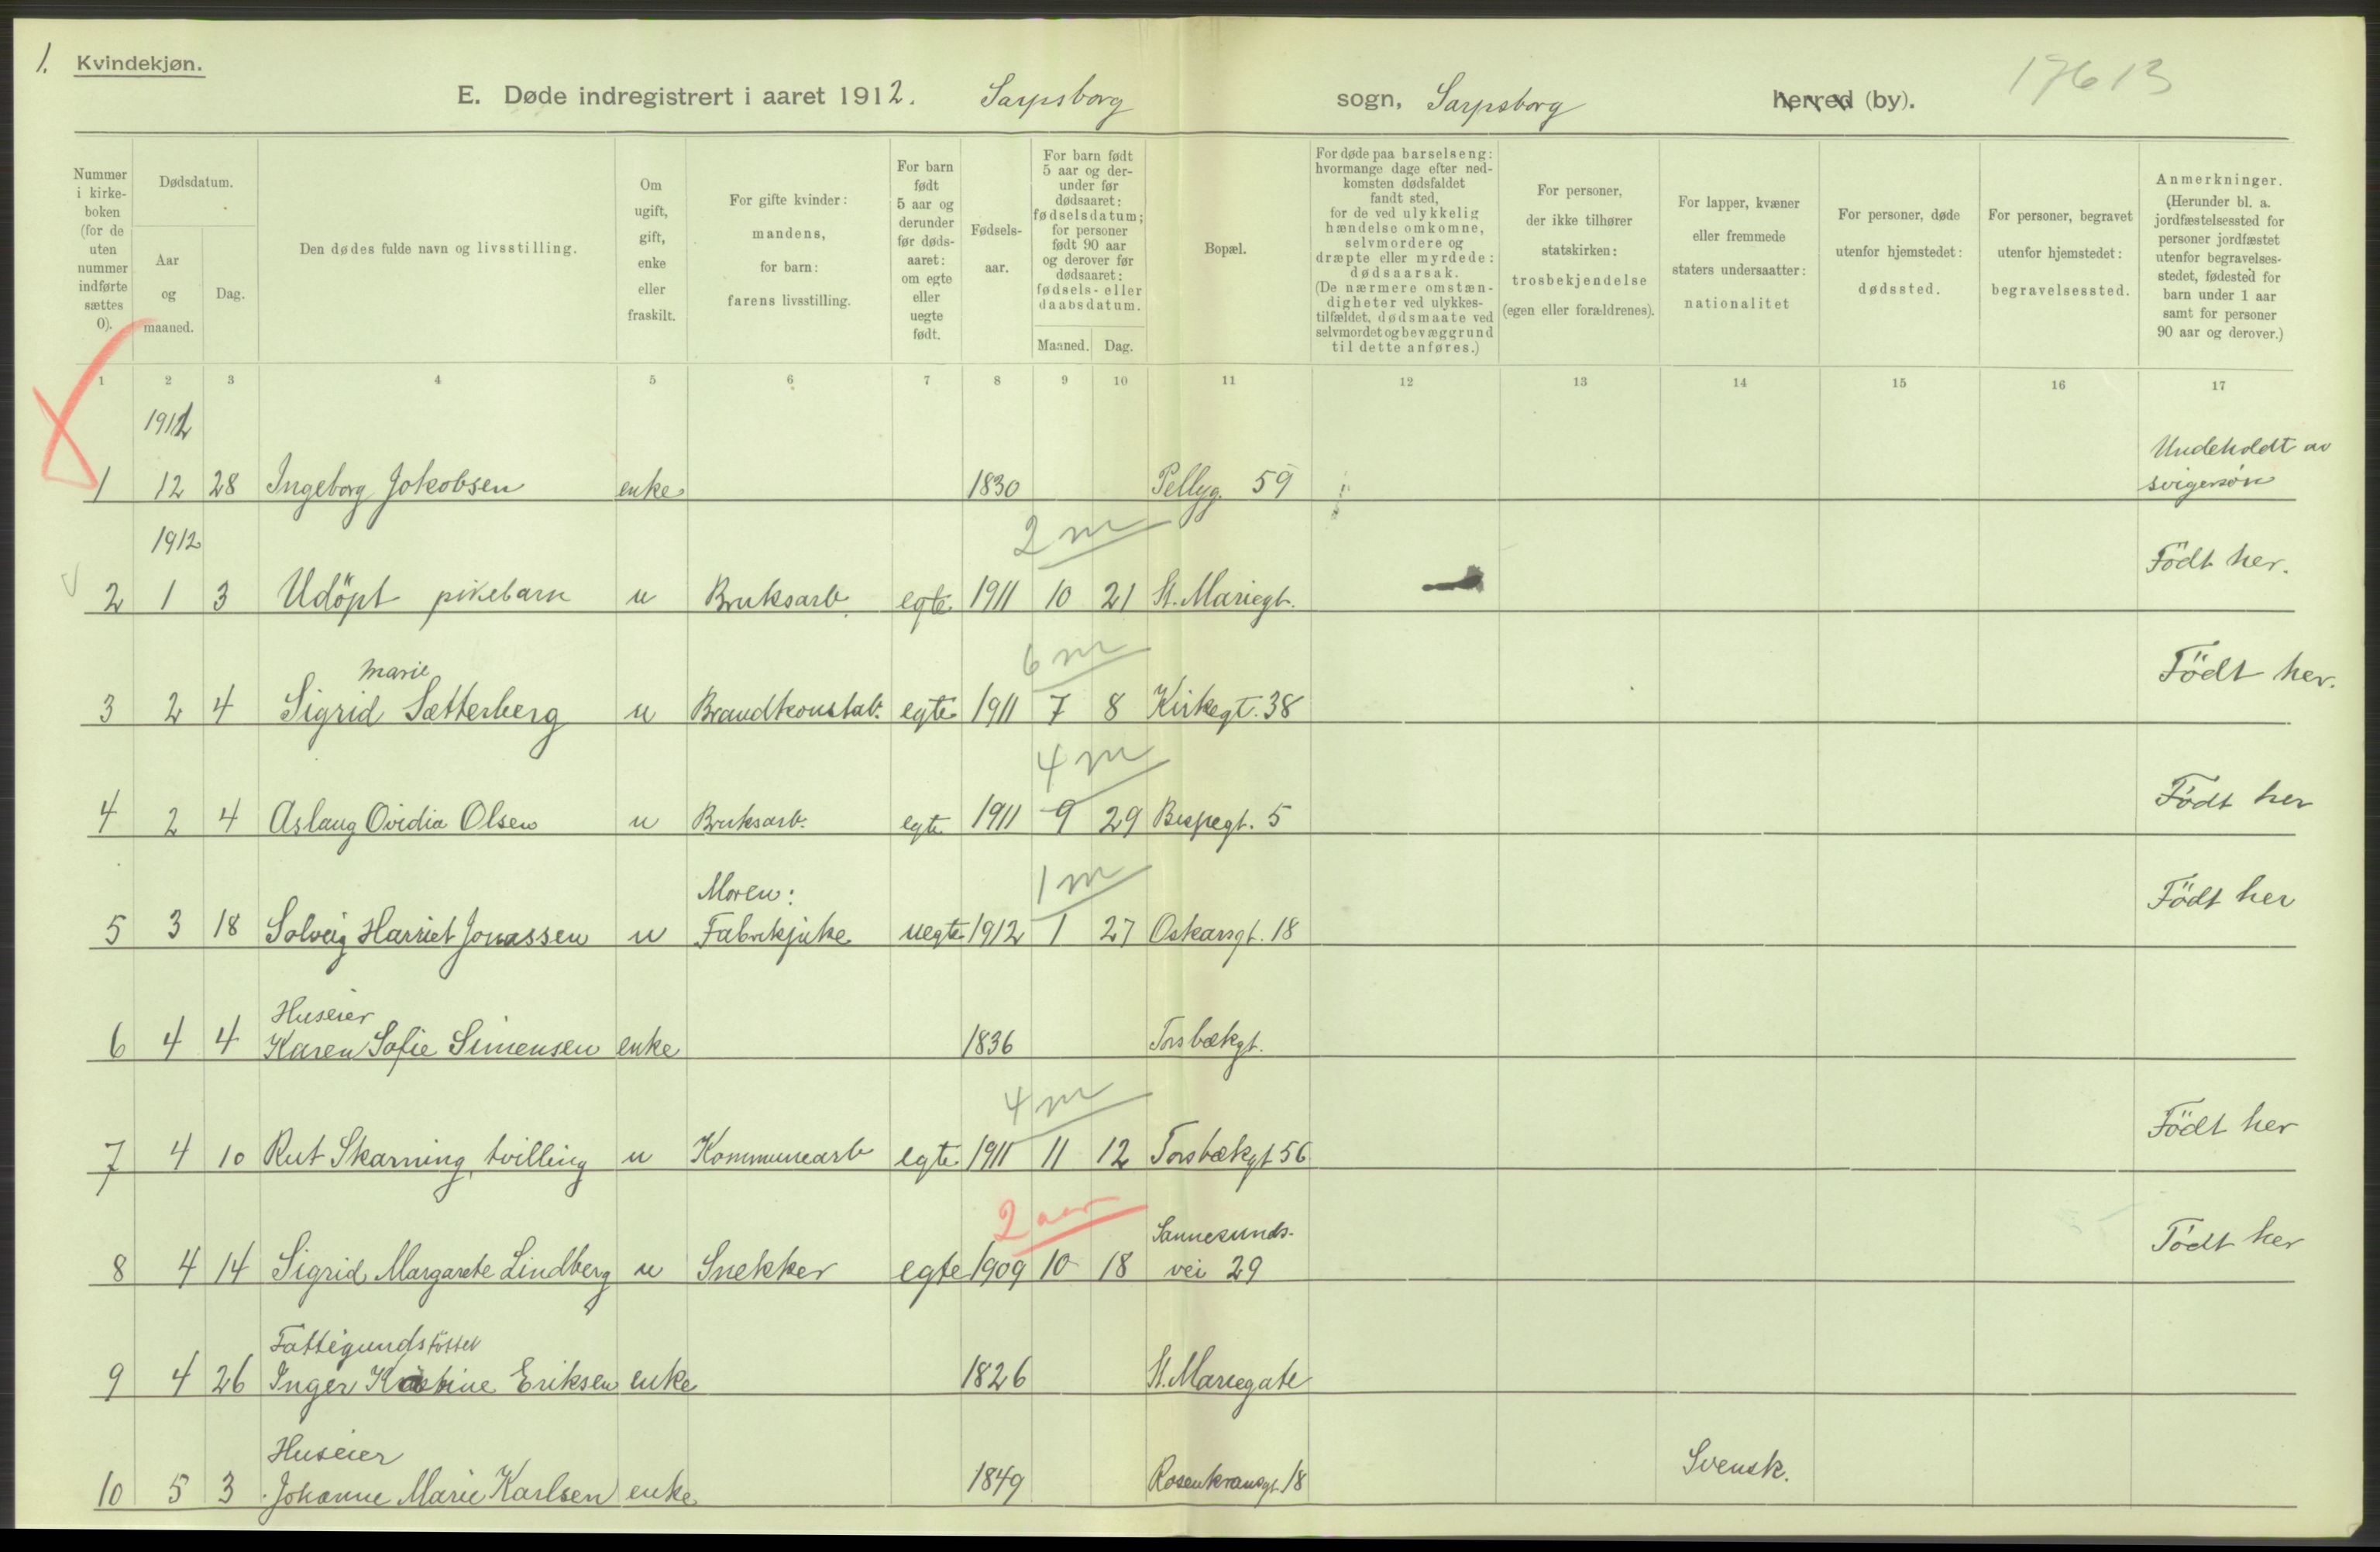 1. Kvindekjøn.
17613
E. Døde indregistrert i aaret 1912. Sarpsborg sogn, Sarpsborg herred (by).
Nummer i kirke- boken (for de uten nummer indførte sættes 0).
Dødsdatum.
Aar og maaned.
Dag.
Den dødes fulde navn og livsstilling.
Om ugift, gift, enke eller fraskilt.
For gifte kvinder: mandens, for barn: farens livsstilling.
For barn født 5 aar og derunder før døds- aaret: om egte eller uegte født.
Fødsels- aar.
For barn født 5 aar og der- under før dødsaaret: fødselsdatum; for personer født 90 aar og derover før dødsaaret: fødsels- eller daabsdatum.
Maaned. Dag.
Bopæl.
For døde paa barselseng: hvormange dage efter ned- komsten dødsfaldet fandt sted, for de ved ulykkelig hændelse omkomne, selvmordere og dræpte eller myrdede: dødsaarsak. (De nærmere omstæn- digheter ved ulykkes- tilfældet, dødsmaate ved selvmordet og bevæggrund til dette anføres.)
For personer, der ikke tilhører statskirken: trosbekjendelse (egen eller forældrenes).
For lapper, kvæner eller fremmede staters undersaatter: nationalitet
For personer, døde utenfor hjemstedet: dødssted.
For personer, begravet utenfor hjemstedet: begravelsessted.
Anmerkninger. (Herunder bl. a. jordfæstelsessted for personer jordfæstet utenfor begravelses- stedet, fødested for barn under 1 aar samt for personer 90 aar og derover.)
1 2 3 4 5 6 7 8 9 10 11 12 13 14 15 16 17
Undeholdt av
1 12 28 Ingeborg Jakobsen enke 1830 Pellyg. 59 svigersøn
1912 2 m
2 1 3 Udöpt pikebarn u Bruksarb. egte 1911 10 21 St. Mariegt. Födt her.
Marie 6 m
3 2 4 Sigrid Sætterberg u Brandkonstab. egte 1911 7 8 Kirkegt. 38 Födt her.
4 m
4 2 4 Aslaug Ovidia Olsen u Bruksarb. egte 1911 9 29 Bispegt. 5 Födt her
Moren: 1 m
5 3 18 Solveig Harriet Jonassen u Fabrikpike uegte 1912 1 27 Oskarsgt. 18 Födt her
Huseier
6 4 4 Karen Sofie Simensen enke 1836 Torsbækgt.
4 m
7 4 10 Rut Skarning, tvilling u Kommunearb egte 1911 11 12 Torsbækgt 56 Födt her
2 aar Sannesunds-
8 4 14 Sigrid Margarete Lindberg u Snekker egte 1909 10 18 vei 29 Födt her
Fattigundstöttet
9 4 26 Inger Eriksen enke 1826 St. Mariegate
Huseier
10 5 3 Johanne Marie Karlsen enke 1849 Rosenkransgt. 18 Svensk.